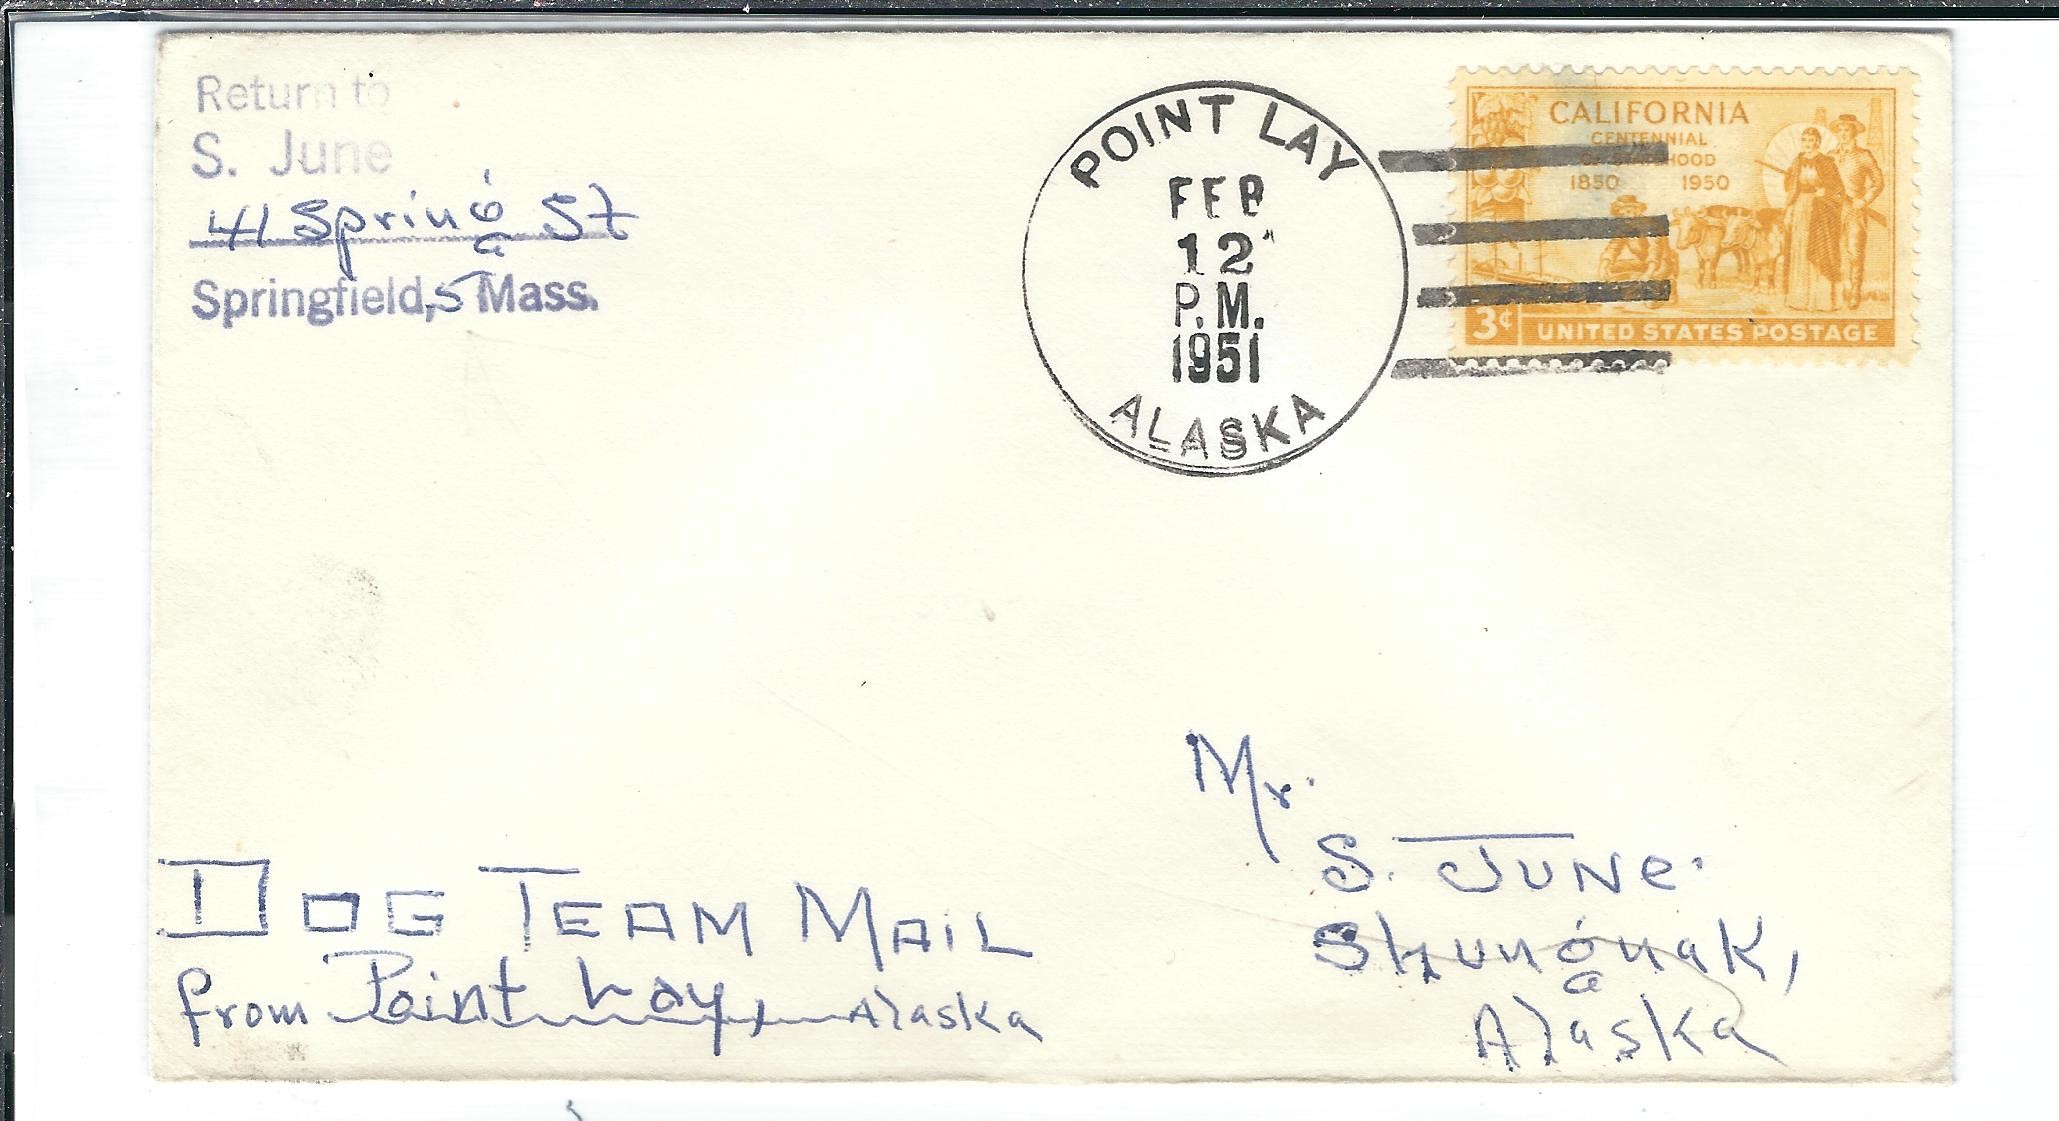 Return to
S. June
41 Spring St
Springfield, 5 Mass.
POINT LAY
FEB
12
P.M.
1951
ALASKA
CALIFORNIA
CENTENNIAL
OF STATEHOOD
1850 1950
3¢ UNITED STATES POSTAGE
Mr.
S. JUNe.
Shungnak,
Alaska
DOG TEAM MAiL
from Point Lay, Alaska